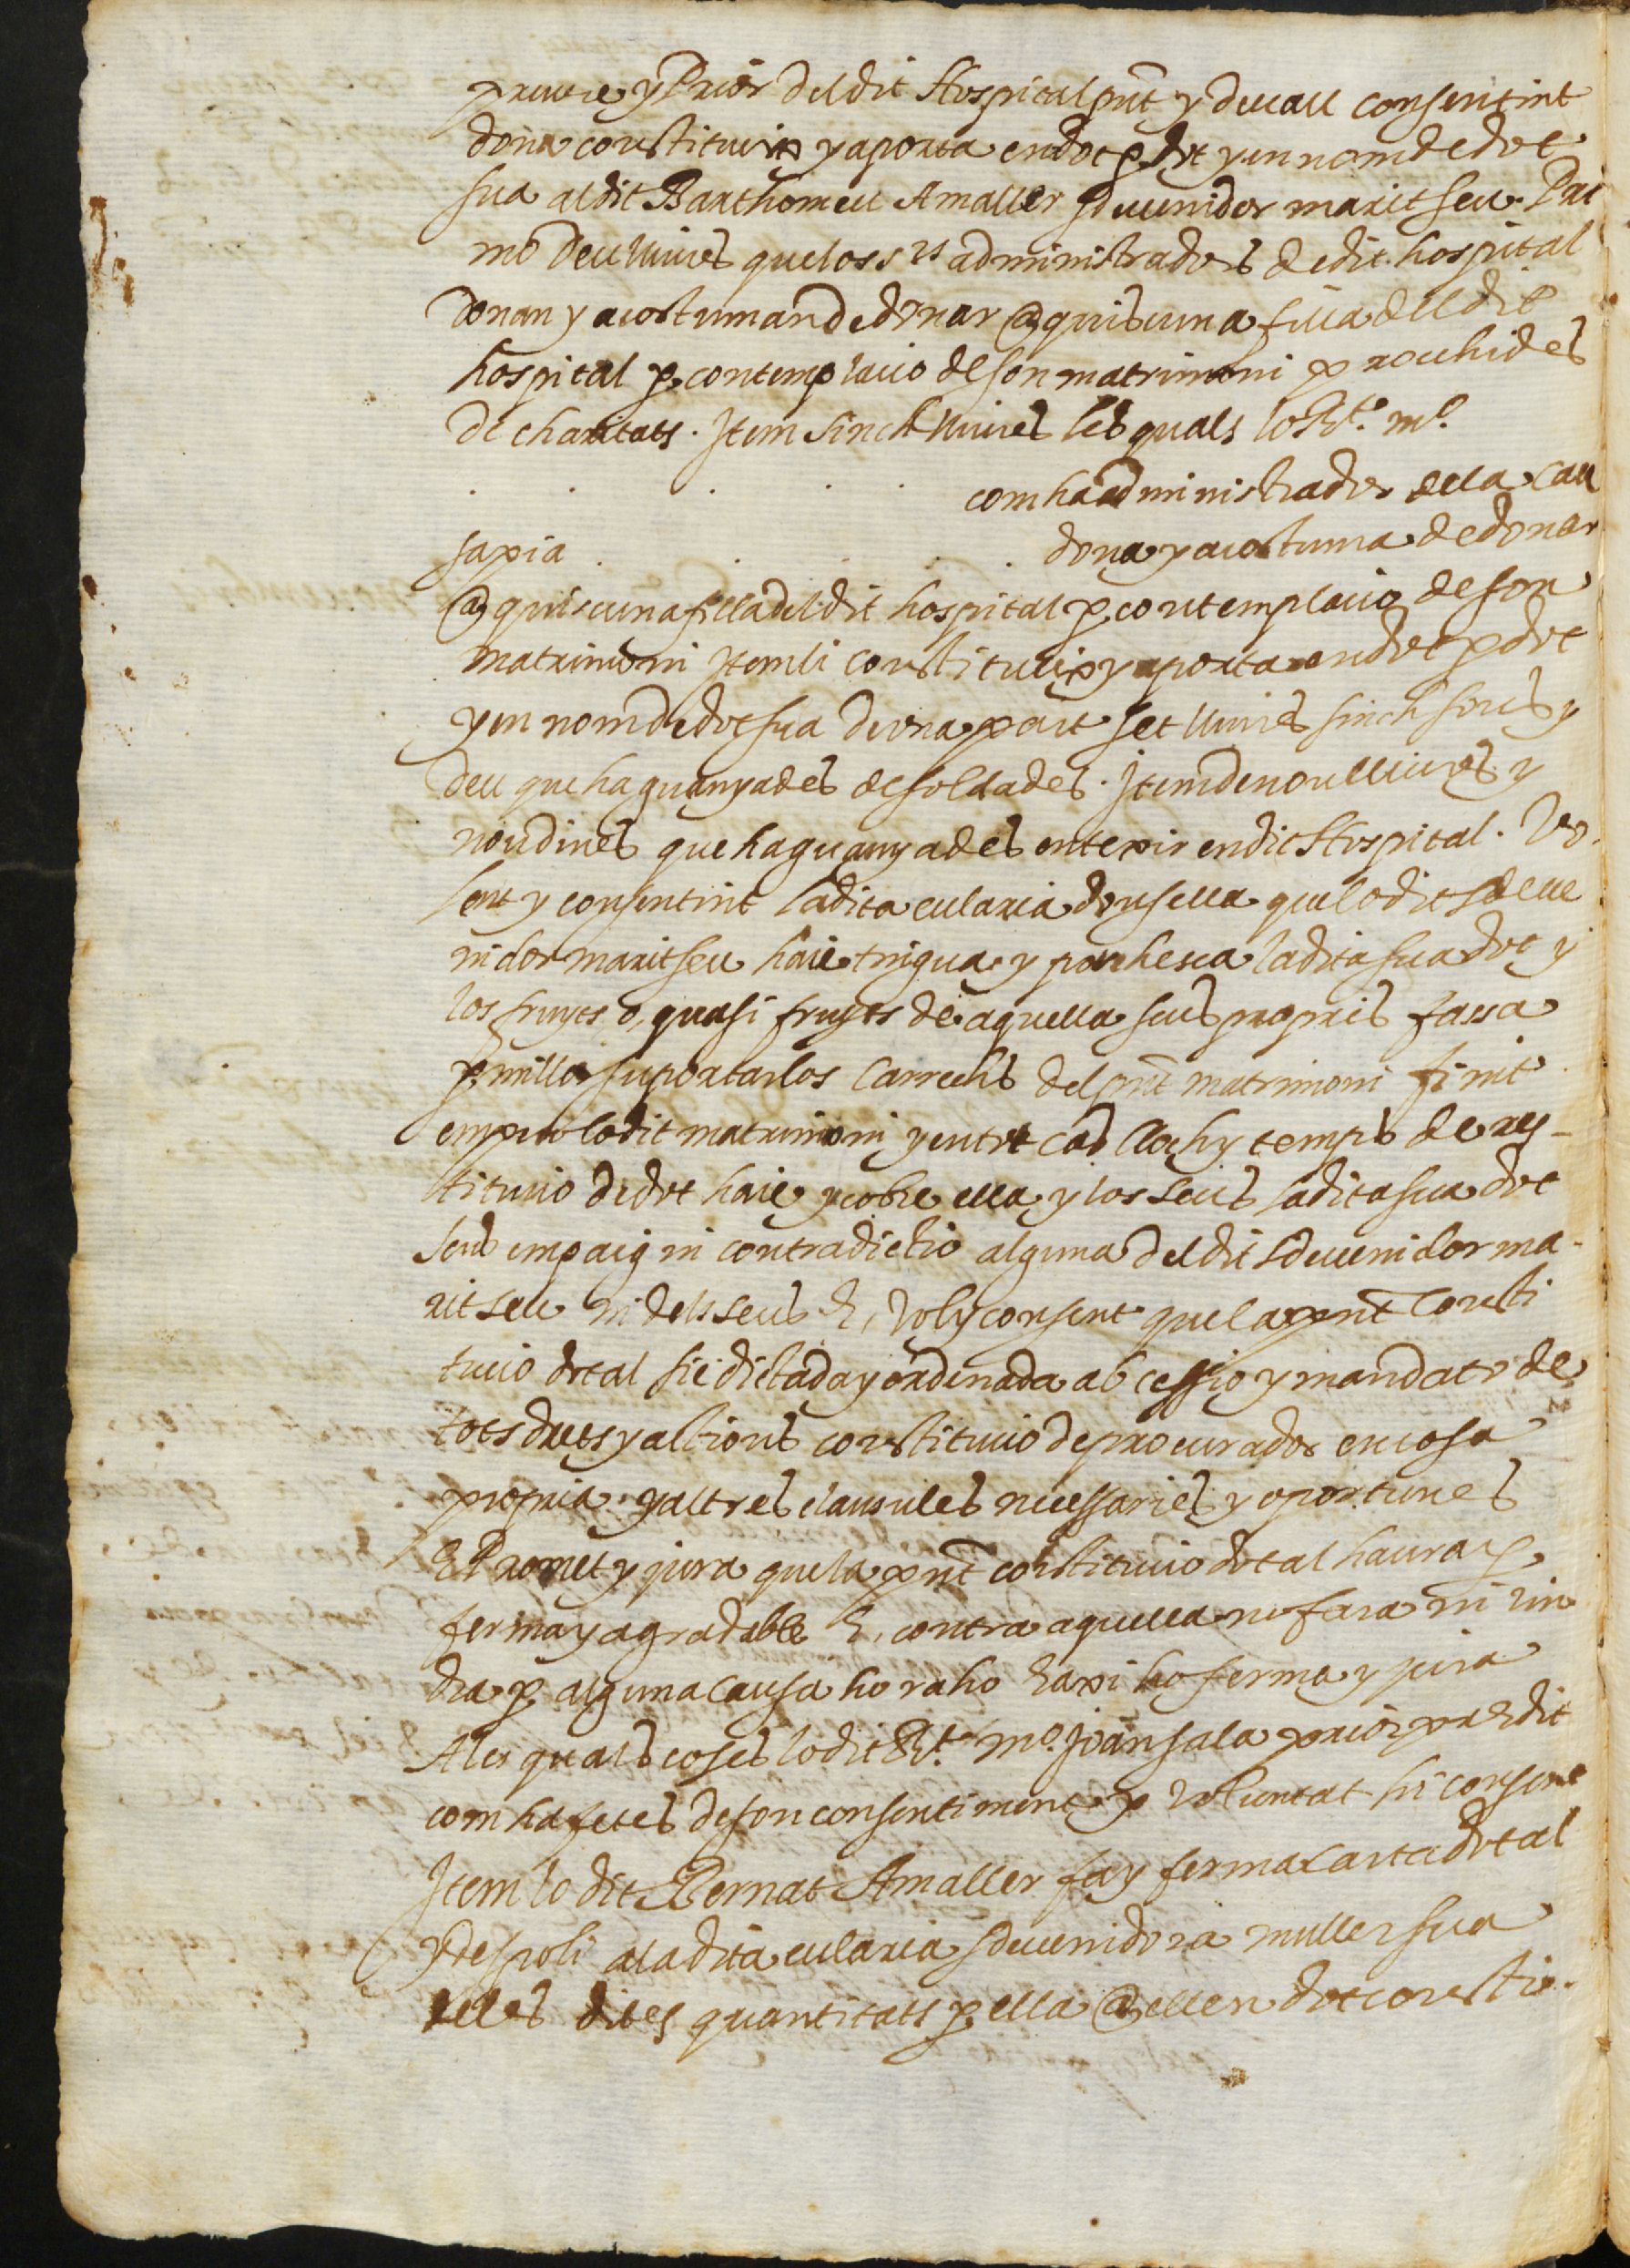 prevere y Prior deldit Hospital pnt y devall consentint
dona constituix y aporta en dot p dot y en nom de dot
sua al dit Barthomeu Amaller sdevenidor marit seu. Pri
mo deu lliures que los srs administradors de dit hospital
donan y acostuman de donar a quiscuna filla del dit
hospital p contemplacio de son matrimoni prouhides
de charitats. Item sinch lliures les quals lo Rt. mº.
. . . com ha administrador de la cau
sa pia . . . dona y acostuma de donar
a quiscuna filla del dit hospital p contemplacio de son
matrimoni Item li constituix y aporta en dot p dot
y en nom de dot sua de una part set lliures sinch sous y
deu que ha guanyades de soldades. Item de nou lliures y
nou dines que ha guanyades en texir en dit Hospital. Vo
lent y consentint la dita eularia donsella que lo dit sdeve
nidor marit seu haie tingua y possehesca la dita sua dot y
los fruyts o, quasi fruyts de aquella seus propris fassa
p millor suportar los carrechs del pnt matrimoni finit
empero lo dit matrimoni y en tot cas lloch y temps de res-
titucio de dot haie y cobre ella y los seus la dita sua dot
sens empaig ni contradictio alguna del dit sdevenidor ma-
rit seu ni dels seus E, vol y consent que la pnt consti
tucio dotal sie dictada y ordenada ab cessio y mandato de
tots drets y actions constitucio de procurador en cosa
propria y altres clausules necessaries y oportunes
E Promet y jura que la pnt constitucio dotal haura p
ferma y agradable E, contra aquella no fara ni vin
dra p alguna causa ho raho E axi ho ferma y jura
A les quals coses lo dit Rt. mº. Joan sala prior predit
com ha fetes de son consentiment y voluntat hi consent
Item lo dit Bernat Amaller fa y ferma carta dotal
y de spoli a la dita eularia sdevenidora muller sua
de les dites quantitats p ella a ell en dot constiu.